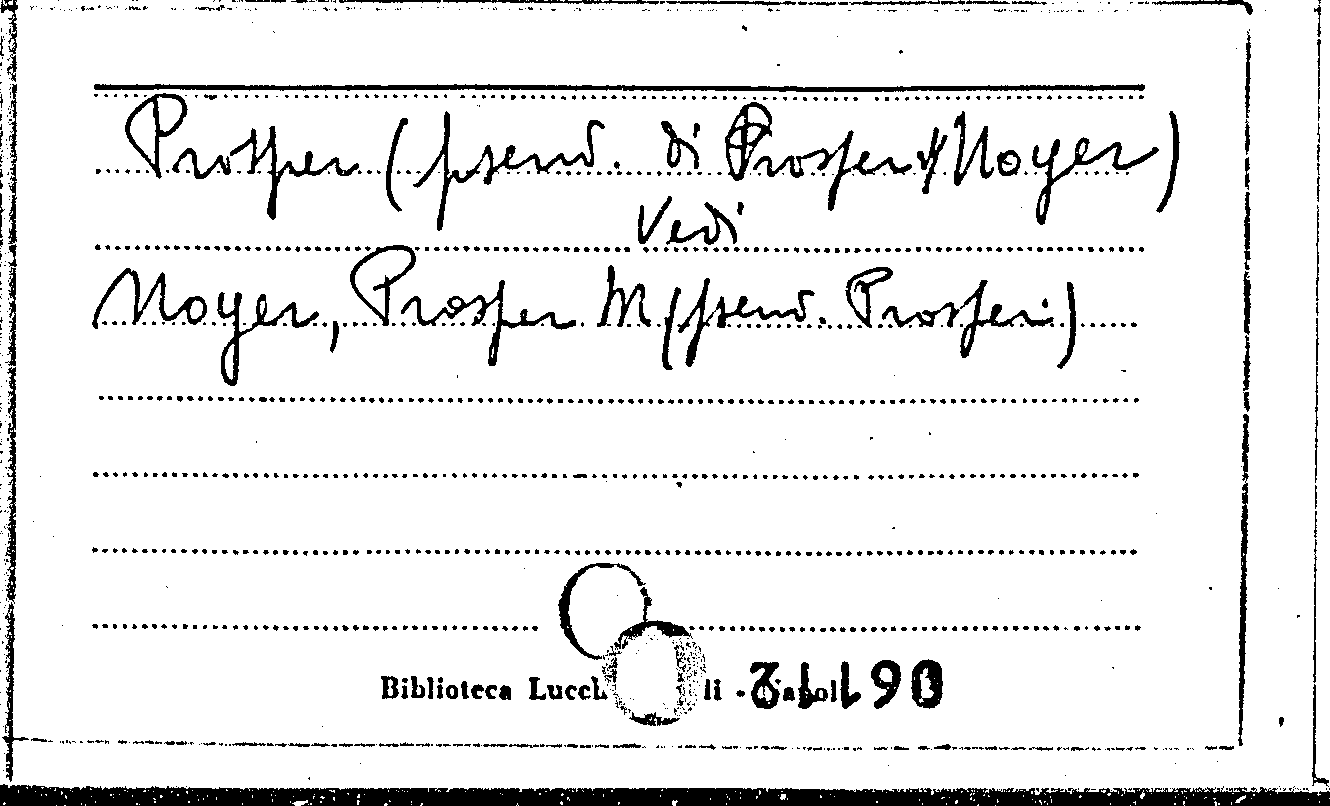 Prosper (pseud. di Prosper Noyer)
Vedi
Noyer, Prosper M (pseud. Prosper)
Biblioteca Lucch li - Napol